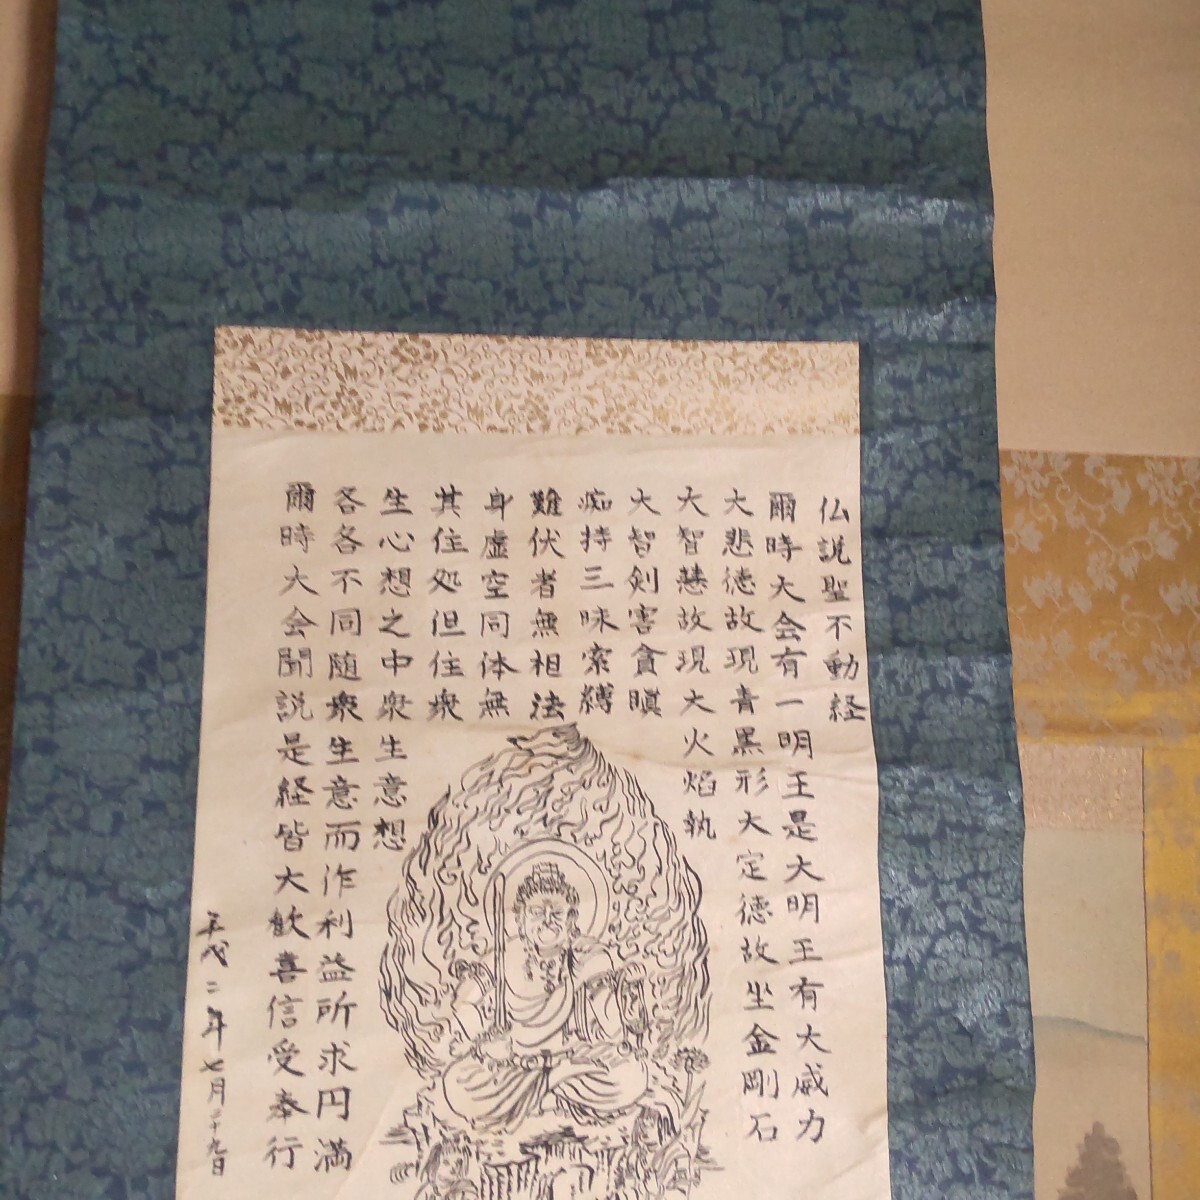 仏説聖不動経
爾時大会有一明王是大明王有大威力
大悲徳故現青黒形大定徳故坐金剛石
大智慧故現大火焔執
大智剣害貪瞋
痴持三昧索縛
難伏者無相法
身虚空同体無
其住処但住衆
生心想之中衆生意想
各各不同随衆生意而作利益所求円満
爾時大会聞説是経皆大歓喜信受奉行
平成二年七月二十九日